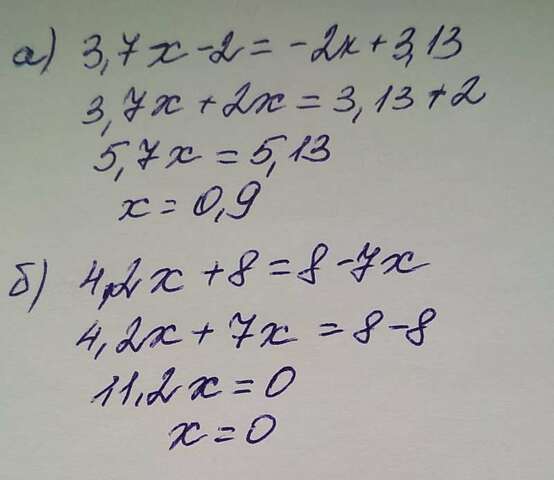 а) 3,7x - 2 = -2x + 3,13
3,7x + 2x = 3,13 + 2
5,7x = 5,13
x = 0,9
б) 4,2x + 8 = 8 - 7x
4,2x + 7x = 8 - 8
11,2x = 0
x = 0